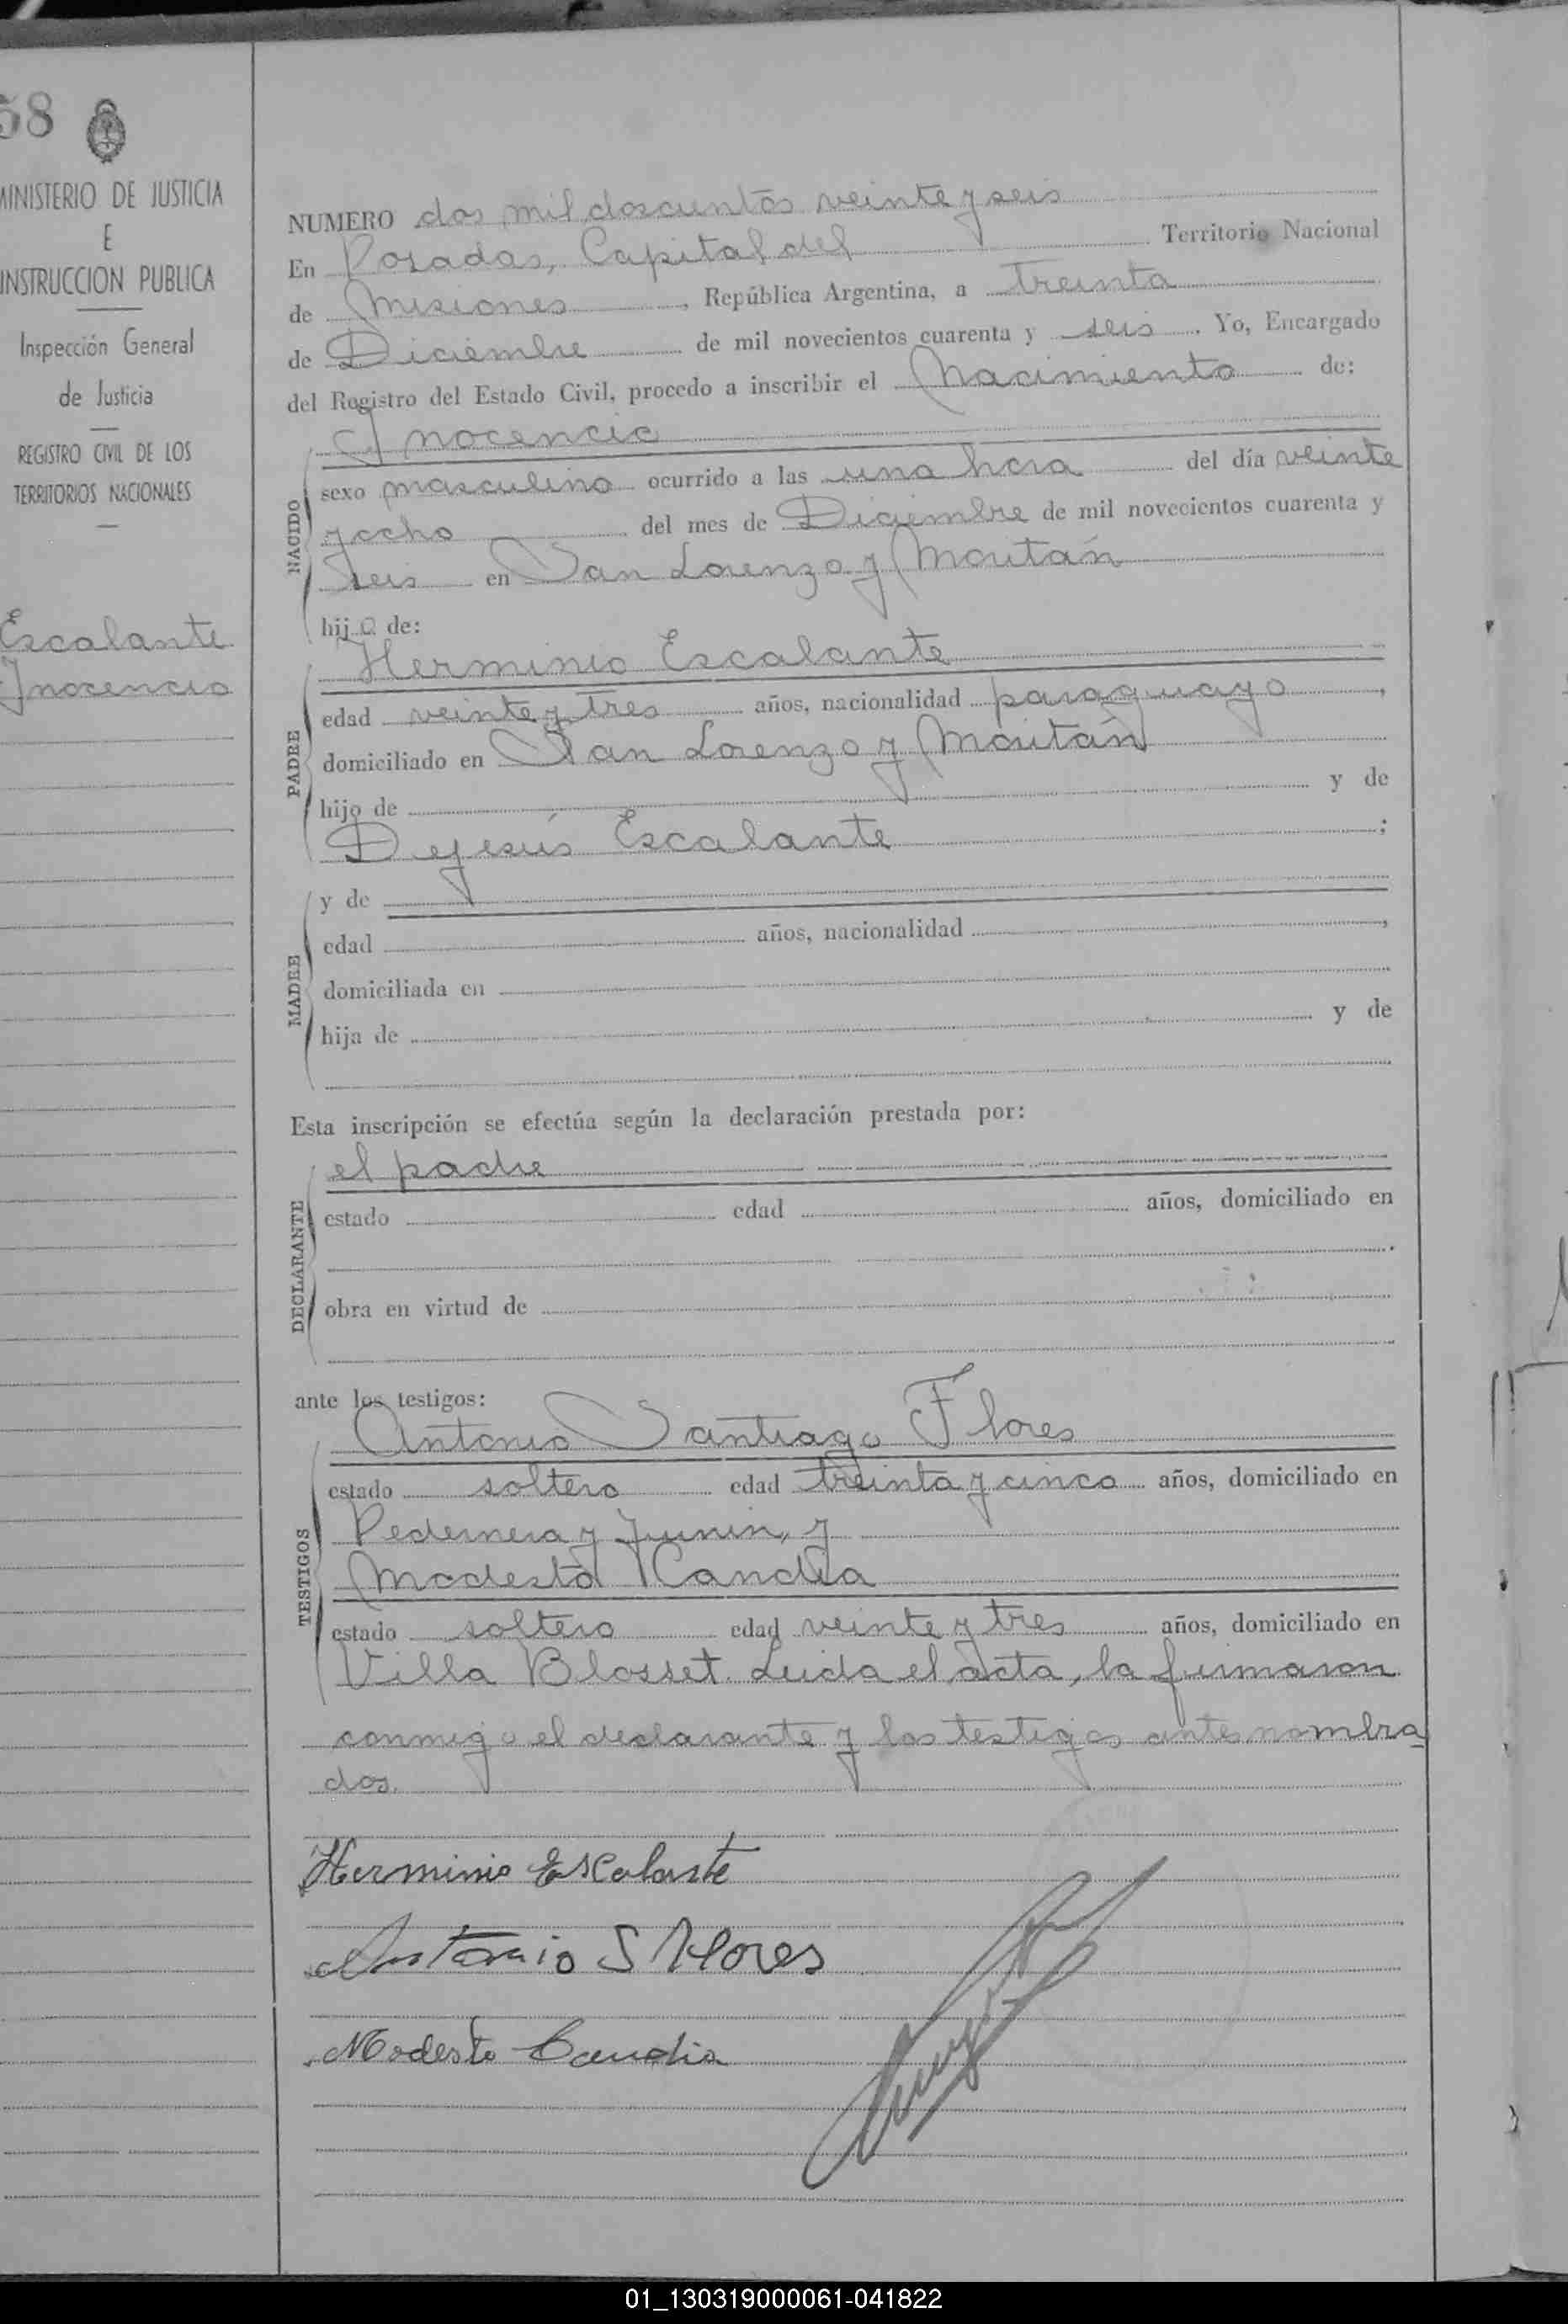 58
MINISTERIO DE JUSTICIA
E
INSTRUCCION PUBLICA
Inspección General
de Justicia
REGISTRO CIVIL DE LOS
TERRITORIOS NACIONALES
Escalante
Inocencio
NUMERO dos mil doscientos veinte y seis
En Posadas, Capital del Territorio Nacional
de Misiones, República Argentina, a treinta
de Diciembre de mil novecientos cuarenta y seis. Yo, Encargado
del Registro del Estado Civil, procedo a inscribir el Nacimiento de:
NACIDO
Inocencio
sexo masculino ocurrido a las una hora del día veinte
y ocho del mes de Diciembre de mil novecientos cuarenta y
seis en San Lorenzo y Moritán
hijo de:
PADRE
Herminio Escalante
edad veinte y tres años, nacionalidad paraguayo,
domiciliado en San Lorenzo y Moritán
hijo de y de
Dejesús Escalante;
MADRE
y de
edad años, nacionalidad,
domiciliada en
hija de y de
Esta inscripción se efectúa según la declaración prestada por:
DECLARANTE
el padre
estado edad años, domiciliado en
obra en virtud de
ante los testigos:
TESTIGOS
Antonio Santiago Flores
estado soltero edad treinta y cinco años, domiciliado en
Pedernera y Junin, y
Modesto Candia
estado soltero edad veinte y tres años, domiciliado en
Villa Blosset. Leida el acta, la firmaron
conmigo el declarante y los testigos antes nombra
dos.
Herminio Escalante
Antonio S Flores
Modesto Candia
01_130319000061-041822